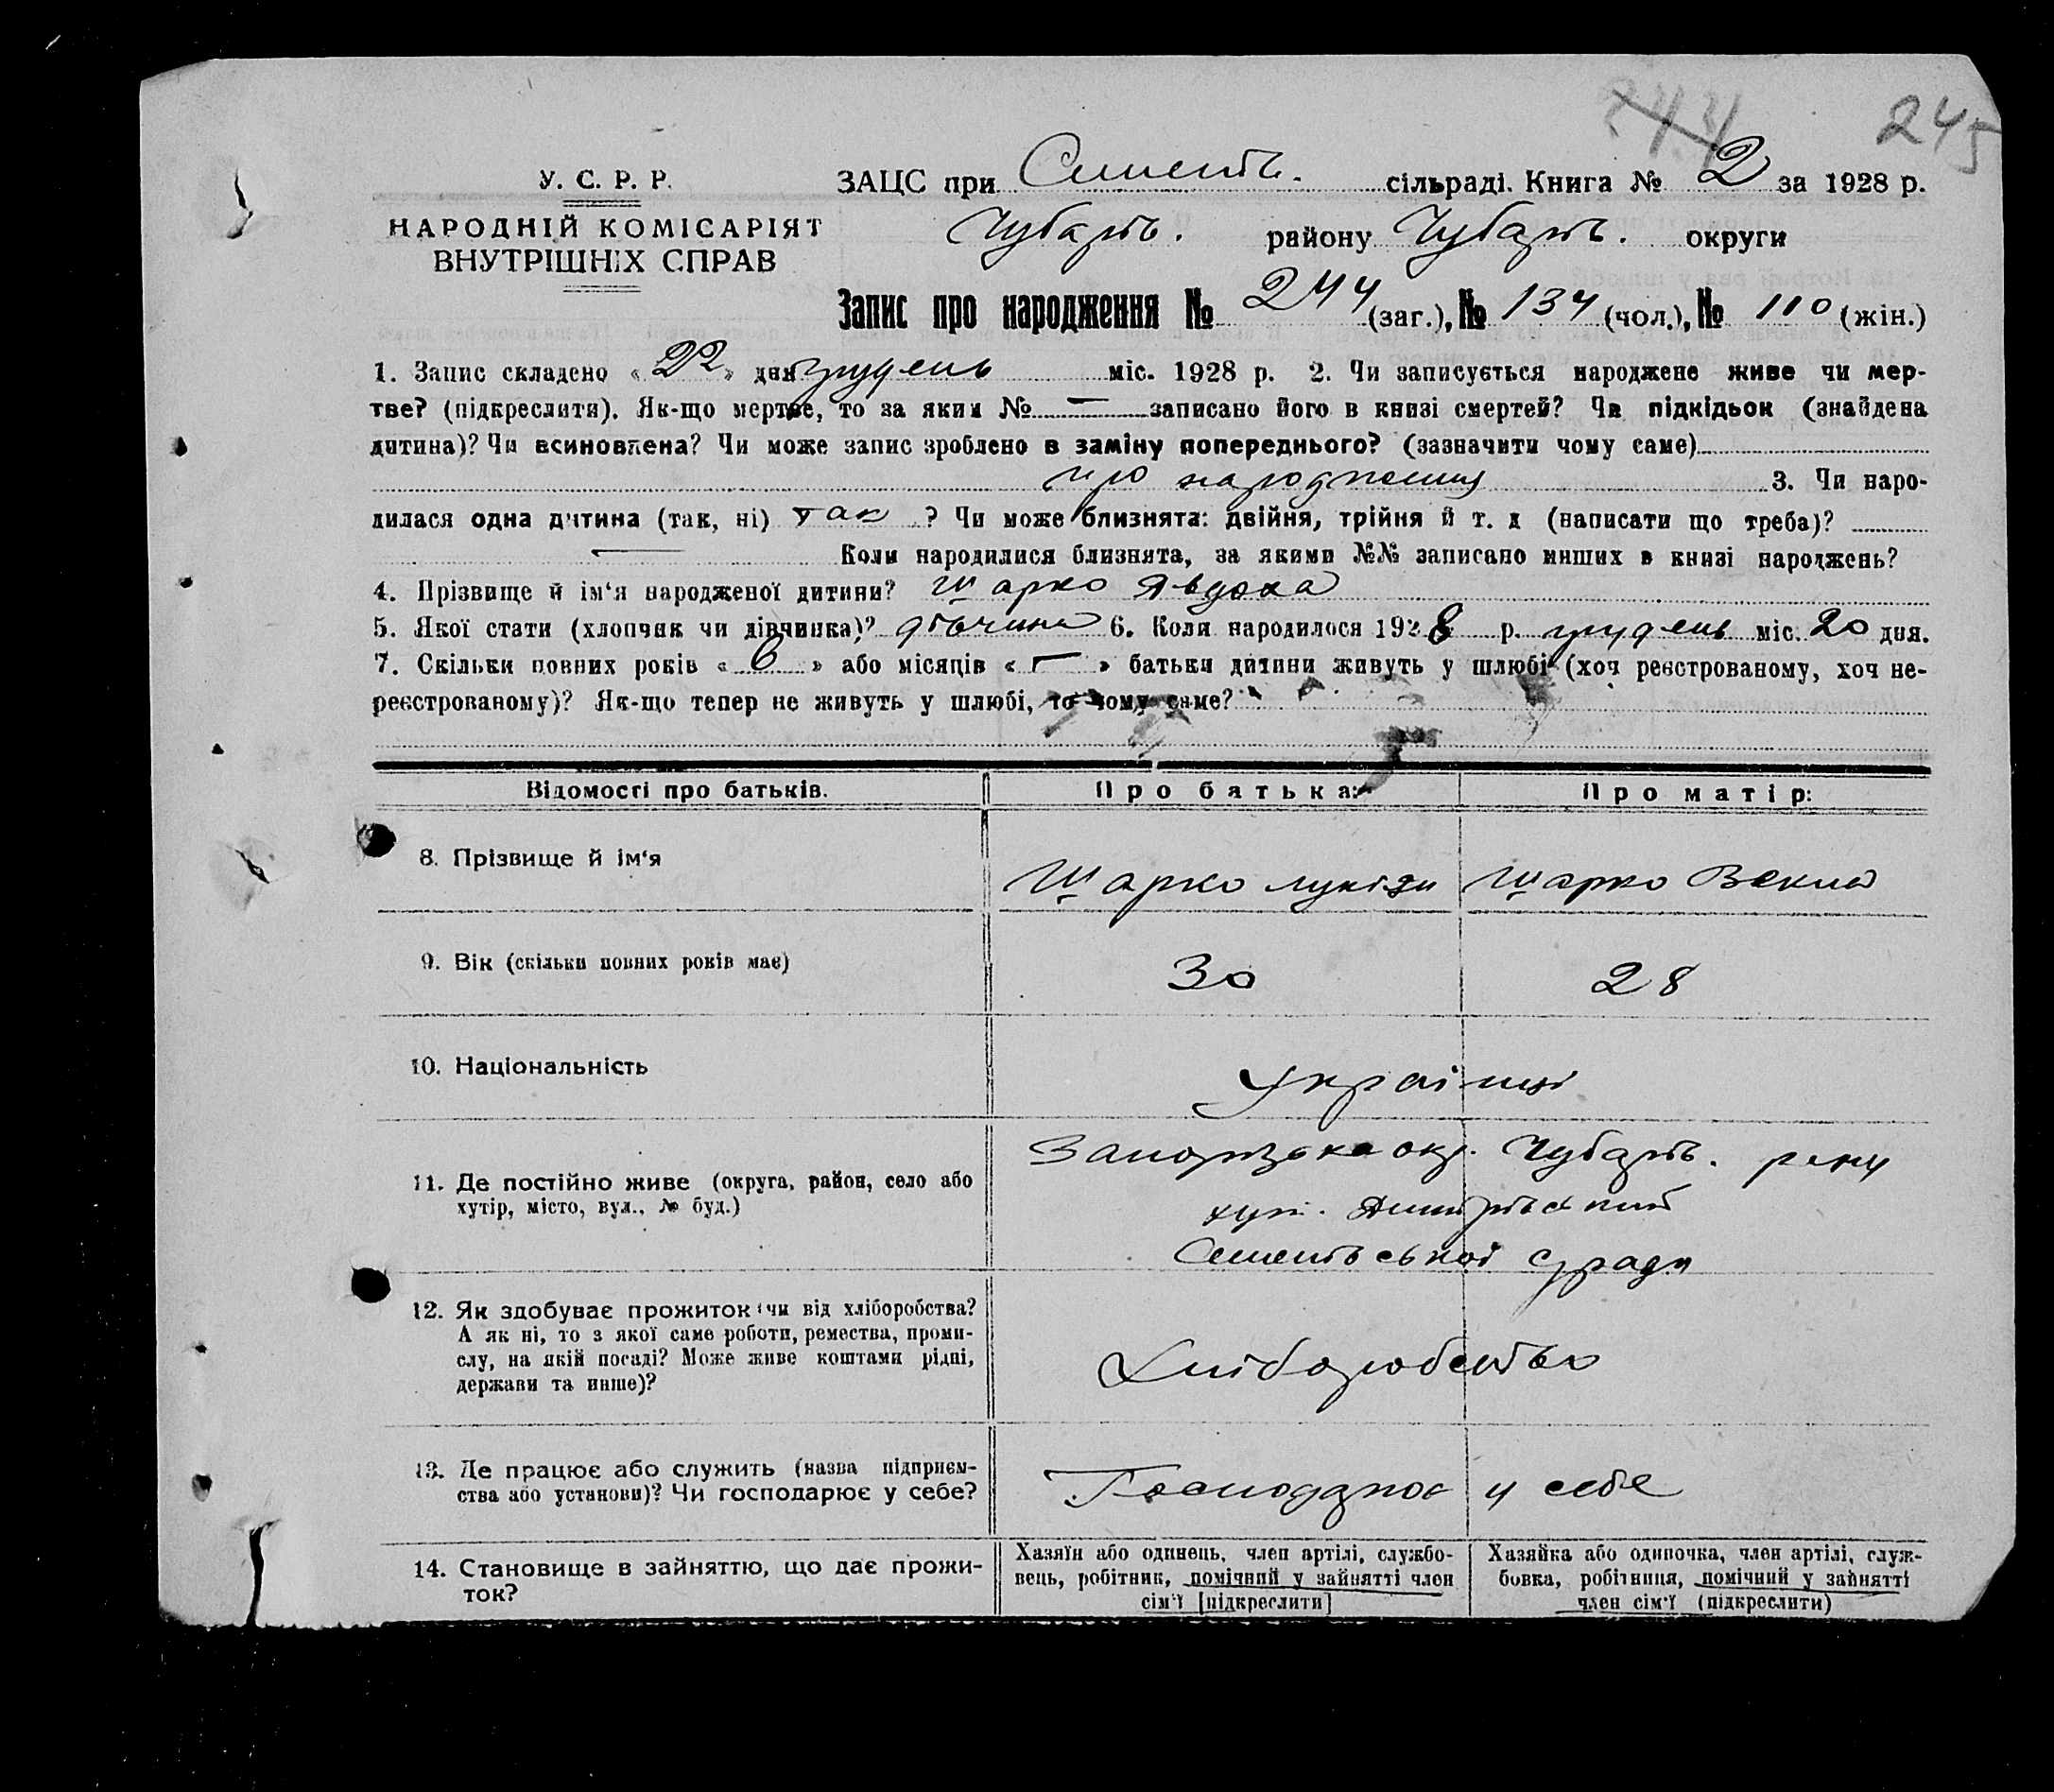 244 245
У. С. Р. Р.
НАРОДНІЙ КОМІСАРІЯТ
ВНУТРІШНІХ СПРАВ
ЗАЦС при Сементв. сільраді. Книга № 2 за 1928 р.
Чубарів. району Чубарів. округи
Запис про народження № 244 (заг.), № 134 (чол.), № 110 (жін.)
1. Запис складено «22» дня грудень міс. 1928 р. 2. Чи записується народжене живе чи мер-
тве? (підкреслити). Як-що мертве, то за яким № — записано його в книзі смертей? Чи підкідьок (знайдена
дитина)? Чи всиновлена? Чи може запис зроблено в заміну попереднього? (зазначити чому саме)
про народження 3. Чи наро-
дилася одна дитина (так, ні) так ? Чи може близнята: двійня, трійня й т. д (написати що треба)?
— Коли народилися близнята, за якими №№ записано инших в книзі народжень?
4. Прізвище й ім‘я народженої дитини? Шарко Явдоха
5. Якої стати (хлопчик чи дівчинка)? дівчина 6. Коли народилося 1928 р. грудень міс. 20 дня.
7. Скільки повних років «6» або місяців «—» батьки дитини живуть у шлюбі (хоч реєстрованому, хоч не-
реєстрованому)? Як-що тепер не живуть у шлюбі, то чому саме?
Відомості про батьків. Про батька: Про матір:
8. Прізвище й ім‘я Шарко Шарко Векла
9. Вік (скільки повних років має) 30 28
10. Національність Українці
11. Де постійно живе (округа, район, село або
хутір, місто, вул., № буд.)
Запорізька окр. Чубарів. рону
хут. Дмитрівский
Сементвської с/ради
12. Як здобуває прожиток: чи від хліборобства?
А як ні, то з якої саме роботи, ремества, проми-
слу, на якій посаді? Може живе коштами рідні,
держави та инше)?
Хліборобство
13. Де працює або служить (назва підприєм-
ства або установи)? Чи господарює у себе?
Господарює у себе
14. Становище в зайняттю, що дає прожи-
ток?
Хазяїн або одинець, член артілі, службо-
вець, робітник, помічний у зайнятті член
сім‘ї [підкреслити]
Хазяйка або одиночка, член артілі, служ-
бовка, робітниця, помічний у зайнятті
член сім‘ї (підкреслити)